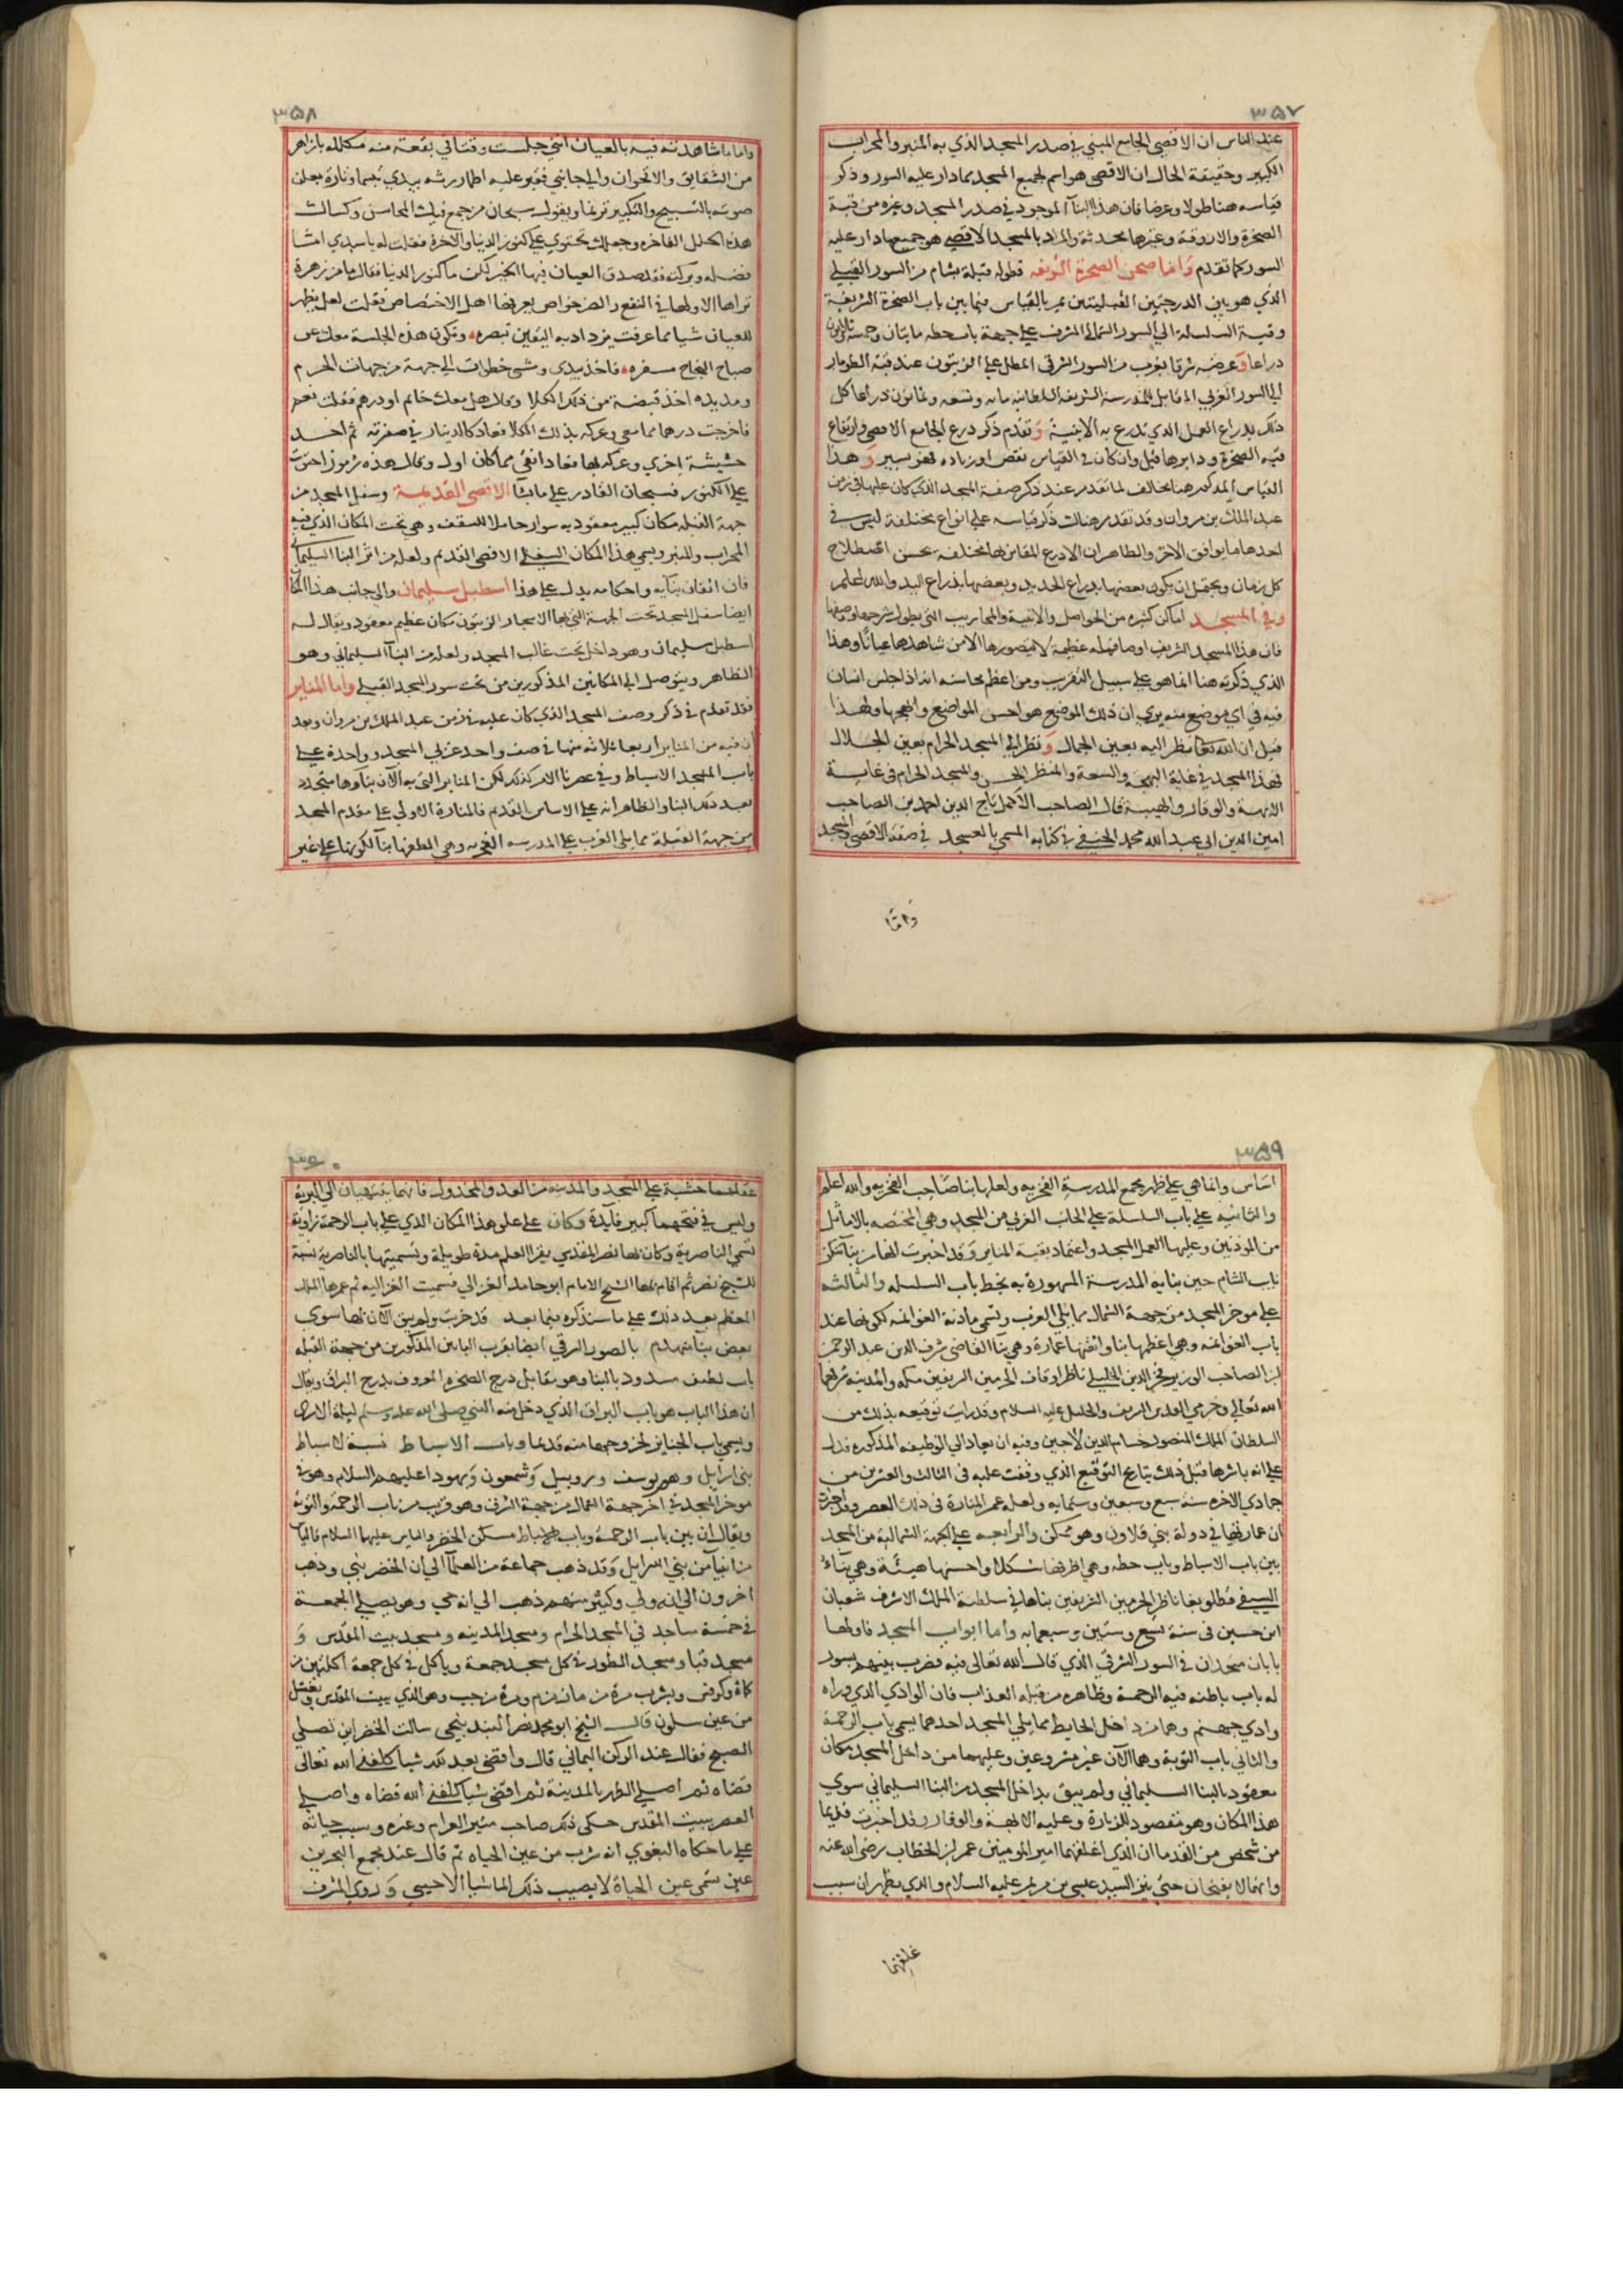 ٣٥٧
عند الناس ان الاقصى الجامع المبني في صدر المسجد الذي به المنبر والمحراب
الكبير وحقيقة الحال ان الاقصى هو اسم لجميع المسجد مما دار عليه السور وذكر
قياسه هنا طولا وعرضا فان هذا البنآ الموجود في صدر المسجد وغيره من قبة
الصخرة والاروقة وغيرها محدثة والمراد بالمسجد الاقصى هو جميع ما دار عليه
السور كما تقدم واما صحن الصخرة الشريفه فطوله قبلة بشام من السور القبلي
الذي هو بين الدرجتين القبليتين يمر بالقياس فيما بين باب الصخرة الشريفة
وقبة السلسلة الي السور الشمالي المشرف علي جهة باب حطه مايتان وخمسة وثلاثون
دراعا وعرضه شرقا بغرب من السور الشرقي المطل علي الزيتون عند قبة الطومار
الي السور الغربي المقابل للمدرسة الشريفة السلطانيه مايه وتسعه وثمانون دراعا كل
ذلك بدراع العمل الذي تدرع به الابنية وتقدم ذكر درع الجامع الاقصى وارتفاع
قبه الصخرة ودايرها قبل وان كان في القياس نقص او زياده فهو يسير وهذا
القياس المذكور هنا مخالف لما تقدم عند ذكر صفة المسجد الذي كان عليها في زمن
عبد الملك بن مروان وقد تقدم هناك ذكر قياسه علي انواع مختلفة ليس في
احدها ما يوافق الآخر والظاهر ان الادرع المقاس بها مختلفة بحسن اصطلاح
كل زمان ويحتمل ان يكون بعضها بدراع الحديد وبعضها بذراع اليد والله اعلم
وفي المسجد اماكن كثيره من الحواصل والابنية والمحاريب التي يطول شرحها ووصفها
فان هذا المسجد الشريف اوصافه عظيمة لا يتصورها الا من شاهدها عيانا وهذا
الذي ذكرته هنا انما هو علي سبيل التقريب ومن اعظم محاسنه انه اذا جلس انسان
فيه في اي موضع منه يري ان ذلك الموضع هو احسن المواضع وابهجها ولهذا
قيل ان الله تعالى نظر اليه بعين الجمال ونظر الي المسجد الحرام بعين الجلال
فهذا المسجد في غاية البهجة والسعة والمنظر الحسن والمسجد الحرام في غاية
الابهة والوقار والهيبة قال الصاحب الاجل تاج الدين احمد بن الصاحب
امين الدين ابي عبد الله محمد الحنفي في كتابه المسمى بالعسجد في صفة الاقصى والمسجد
واما
٣٥٨
واما ما شاهدته فيه بالعيان انني جلست وقتا في بقعة منه مكللة بازاهر
من الشقايق والاقحوان والي جانبي فقير عليه اطمار رثه يبدي تبسما وتارة يعلن
صوته بالتسبيح والتكبير ترنما ويقول سبحان من جمع فيك المحاسن وكساك
هذه الحلل الفاخرة وجعلك تحتوي علي كنوز الدنيا والاخرة فقلت له يا سيدي امّا
فضله وبركته فقد صدق العيان فيها الخبر لكن ما كنوز الدنيا فقال ما من زهرة
تراها الا ولها في النفع والضر خواص يعرفها اهل الاختصاص فقلت لعل يظهر
للعيان شيا مما عرفت يزداد به اليقين تبصره وتكون هذه الجلسة معك عن
صباح النجاح مسفره فاخذ بيدي ومشى خطوات الي جهة من جهات الحرم
ومد يده اخذ قبضة من ذلك الكلا وقال هل معك خاتم او درهم فقلت نعم
فاخرجت درهما مما معي وعركه بذلك الكلا فعاد كالدينار في صفرته ثم اخذ
حشيشة اخري وعركه بها فعاد انقى مما كان اول وقال هذه رموز احتوت
علي الكنوز فسبحان القادر علي ما يشا الاقصى القديمة وسفل المسجد من
جهة القبلة مكان كبير معقود به سوار حاملا للسقف وهي تحت المكان الذي فيه
المحراب والمنبر ويسمى هذا المكان السفلي الاقصى القديم ولعله من اثر البنا السليماني
فان اتقان بنآيه واحكامه يدل علي هذا اسطبل سليمان والي جانب هذا المكان
ايضا سفل المسجد تحت الجهة التي بها الاسجار الزيتون مكان عظيم معقود ويقال له
اسطبل سليمان وهو داخل تحت غالب المسجد ولعله من البنآ السليماني وهو
الظاهر ويتوصل الي المكانين المذكورين من تحت سور المسجد القبلي واما المناير
فقد تقدم في ذكر وصف المسجد الذي كان عليه في زمن عبد الملك بن مروان وبعد
ان فيه من المناير اربعا ثلاثه منها في صف واحد غربي المسجد وواحدة علي
باب المسجد الاسباط وفي عصرنا الامر كذلك لكن المناير التي به الآن بناوها متجدد
بعد ذلك البنا والظاهر انه علي الاساس القديم فالمنارة الاولي علي مقدم المسجد
من جهة القبلة مما يلي الغرب علي المدرسه الفخريه وهي الطفها بنآ لكونها علي غير
٣٥٩
اساس وانما هي علي ظهر مجمع المدرسة الفخريه ولعلها بنا صاحب الفخريه والله اعلم
والثانيه علي باب السلسلة علي الجانب الغربي من المسجد وهي المختصه بالاماثل
من المؤذنين وعليها العمل المسجد واعتماد بقية المناير وقد اخبرت انها من بنآ تنكز
نايب الشام حين بنايه المدرسة المشهورة به بخط باب السلسله والثالثه
علي موخر المسجد من جهة الشمال مما يلي الغرب وتسمى مادنة الغوانمه لكونها عند
باب الغوانمه وهي اعظمها بنا واتقنها عمارة وهي بنآ القاضي شرف الدين عبد الرحمن
ابن الصاحب الوزير فخر الدين الخليلي ناظر اوقاف الحرمين الشريفين مكه والمدينة شرفهما
الله تعالي وحرمي القدس الشريف والخليل عليه السلام وقد رايت توقيعه بذلك من
السلطان الملك المنصور حسام الدين لاجين وفيه ان يعاد الي الوظيفه المذكوره فدل
علي انه باشرها قبل ذلك بتاريخ التوقيع الذي وقفت عليه في الثالث والعشرين من
جمادي الاخره سنة سبع وسبعين وستمايه ولعله عمر المنارة في ذلك العصر وقد اخبرت
ان عمارتها في دولة بني قلاون وهو ممكن والرابعه علي الجهة الشمالية من المسجد
بين باب الاسباط وباب حطه وهي اظرفها شكلا واحسنها هيئة وهي بنآء
السيفي قطلوبغا ناظر الحرمين الشريفين بناها في سلطنة الملك الاشرف شعبان
ابن حسين في سنة تسع وستين وسبعمايه وأما ابواب المسجد فاولها
بابان متحدان في السور الشرقي الذي قال الله تعالى فيه فضرب بينهم بسور
له باب باطنه فيه الرحمة وظاهره من قبله العذاب فان الوادي الذي وراه
وادي جهنم وهما من داخل الحايط مما يلي المسجد احدهما يسمى باب الرحمة
والثاني باب التوبة وهما الآن غير مشروعين وعليهما من داخل المسجد مكان
معقود بالبنا السليماني ولم يبق بداخل المسجد من البنا السليماني سوي
هذا المكان وهو مقصود للزيارة وعليه الابهة والوقار وقد اخبرت قديما
من شخص من القدما ان الذي اغلقهما امير المومنين عمر ابن الخطاب رضي الله عنه
وانهما لا يفتحان حتى ينزل السيد عيسى بن مريم عليه السلام والذي يظهر ان سبب
غلقهما
٣٦٠
غلقهما خشية علي المسجد والمدينه من العدو والمخذول فانهما ينتهيان الي البرية
وليس في فتحهما كبير فآيدة وكان علي علو هذا المكان الذي علي باب الرحمة زاوية
تسمى الناصرية وكان بها نصر المقدسي يقرا العلم مدة طويلة وتسميتها بالناصرية نسبة
للشيخ نصر ثم اقام بها الشيخ الامام ابو حامد الغزالي فسميت الغزاليه ثم عمرها الملك
المعظم بعد ذلك علي ما سنذكره فيما بعد قد خربت ولم يبق الآن بها سوى
بعض بنآ منهدم بالصور الشرقي ايضا بقرب البابين المذكورين من جهة القبلة
باب لطيف مسدود بالبنا وهو مقابل درج الصخره المعروف بدرج البراق ويقال
ان هذا الباب هو باب البراق الذي دخل منه النبي صلى الله عليه وسلم ليلة الاسرى
ويسمى باب الجنايز لخروجها منه قديما وباب الاسباط نسبة لاسباط
بني اسرايل وهم يوسف وروبيل وشمعون ويهودا عليهم السلام وهو في
موخر المسجد في اخر جهة الشمال من جهة الشرق وهو قريب من باب الرحمة والتوبة
ويقال ان بين باب الرحمة وباب الاسباط مسكن الخضر والياس عليهما السلام فالياس
من انبيآ بني اسرايل وقد ذهب جماعة من العلمآ الي ان الخضر نبي وذهب
اخرون الي انه ولي وكثير منهم ذهب الي انه حي وهو يصلي الجمعة
في خمسة مساجد في المسجد الحرام ومسجد المدينه ومسجد بيت المقدس و
مسجد قبا ومسجد الطور في كل مسجد جمعة وياكل في كل جمعة اكلتين من
كماة وكرفس ويشرب مرة من ماء زمزم ومرة من جب وهو الذي ببيت المقدس ويغتسل
من عين سلون قال الشيخ ابو محمد نصر البندنيجي سالت الخضر اين تصلي
الصبح فقال عند الركن اليماني قال واقضي بعد ذلك شيا كلفني الله تعالى
قضاه ثم اصلي الظهر بالمدينة ثم اقضي شيا كلفني الله قضاه واصلي
العصر ببيت المقدس حكى ذلك صاحب مثير الغرام وغيره وسبب حياته
علي ما حكاه البغوي انه شرب من عين الحياه ثم قال عند مجمع البحرين
عين تسمى عين الحياة لا يصيب ذلك الما شيا الا حيي وروي المشرف